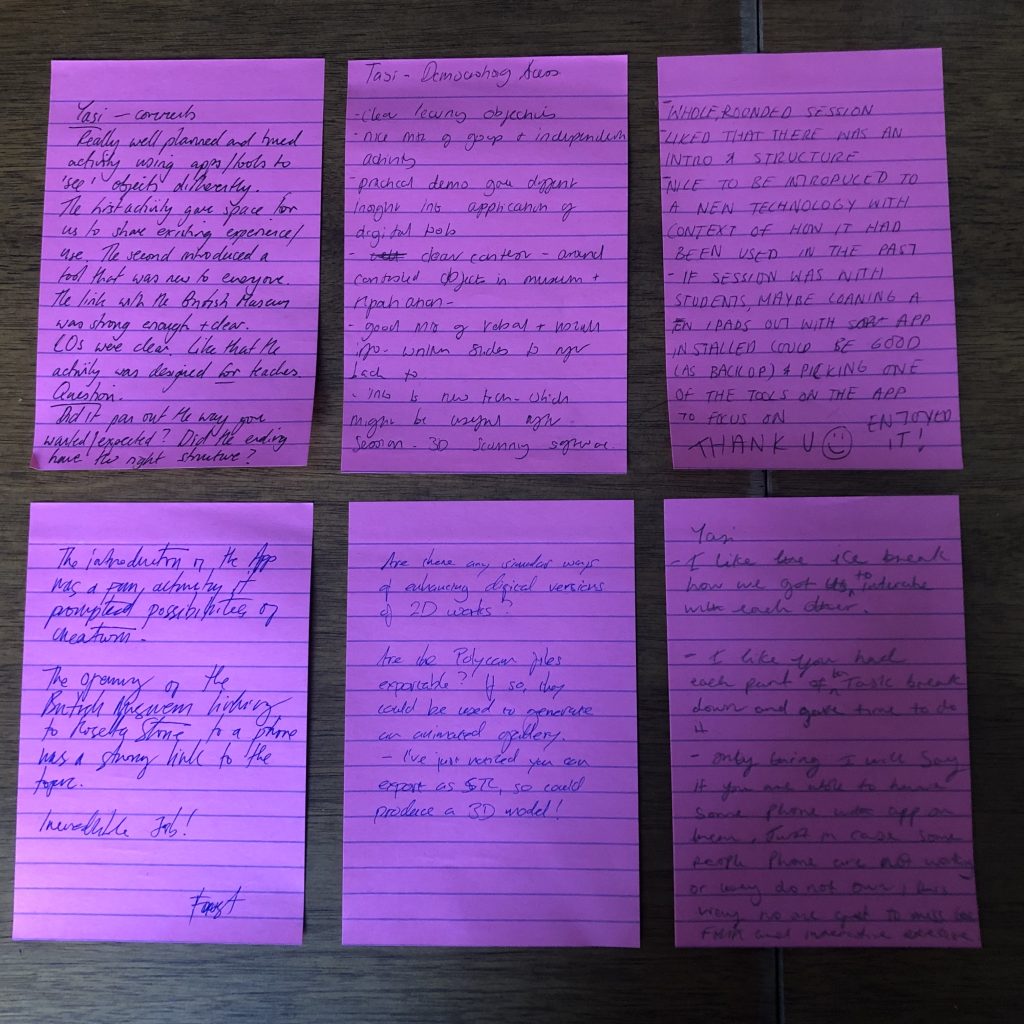 Yasi – comments
Really well planned and timed
activity using apps/tools to
'see' objects differently.
The first activity gave space for
us to share existing experience/
use. The second introduced a
tool that was new to everyone.
The link with the British Museum
was strong enough + clear.
LOs were clear. Like that the
activity was designed for teachers.
Question.
Did it pan out the way you
wanted/expected? Did the ending
have the right structure?
Yasi - Democratising Access
- clear learning objectives
- nice mix of group + independent
activity
- practical demo gave different
insight into application of
digital tools
- clear context - around
controlled objects in museum +
repatriation -
- good mix of verbal + visual
info - written slides to refer
back to.
- into to new tech - which
might be useful after
session - 3D scanning software
- WHOLE, ROUNDED SESSION
- LIKED THAT THERE WAS AN
INTRO & STRUCTURE
- NICE TO BE INTRODUCED TO
A NEW TECHNOLOGY WITH
CONTEXT OF HOW IT HAD
BEEN USED IN THE PAST
- IF SESSION WAS WITH
STUDENTS, MAYBE LOANING A
IPADS OUT WITH APP
INSTALLED COULD BE GOOD
(AS BACKUP) & PICKING ONE
OF THE TOOLS ON THE APP
TO FOCUS ON
THANK U ☺ ENJOYED
IT!
The introduction of the App
was a fun, activity it
prompted possibilities of
creation.
The opening of the
British Museum linking
to Rosetta Stone, to a phone
has a strong link to the
topic.
Incredible Job!
Are there any similar ways
of enhancing digical versions
of 2D works?
Are the Polycam files
exportable? If so, they
could be used to generate
an animated gallery.
- I've just noticed you can
export as STL, so could
produce a 3D model!
Yasi
- I like the ice break
how we got to interate
with each other.
- I like you had
each part of the Task break
down and gave time to do
it
- only thing I will say
if you are able to have
some phone with app on
them, Just in case some
people phone are not working
or they do not own this
way no one get to miss the
FUN and interactive exercise